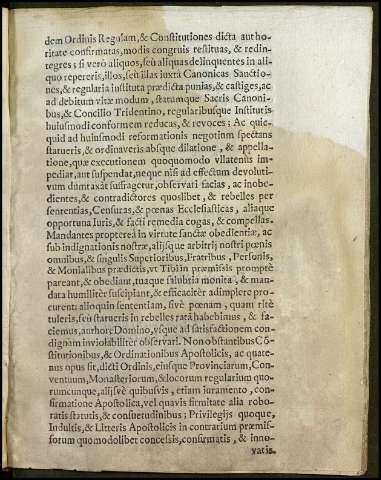 dem Ordinis Regulam, & Constitutiones dicta autho-
ritate confirmatas, modis congruis restituas, & redin-
tegres; si verò aliquos, seù aliquas delinquentes in ali-
quo repereris, illos, seù illas iuxta Canonicas Sanctio-
nes, & regularia instituta prædicta punias, & castiges, ac
ad debitum vitæ modum, statumque Sacris Canoni-
bus, & Concilio Tridentino, regularibusque Institutis
huiusmodi conformem reducas, & revoces; Ac quic-
quid ad huiusmodi reformationis negotium spectans
statueris, & ordinaveris absque dilatione, & appella-
tione, quæ executionem quoquomodo vllatenus im-
pediat, aut suspendat, neque nisi ad effectum devoluti-
vum dumtaxàt suffragetur, observari facias, ac inobe-
dientes, & contradictores quoslibet, & rebelles per
sententias, Censuras, & pœnas Ecclesiasticas, aliaque
opportuna Iuris, & facti remedia cogas, & compellas.
Mandantes proptereà in virtute sanctæ obedientiæ, ac
sub indignationis nostræ, alijsque arbitrij nostri pœnis
omnibus, & singulis Superioribus, Fratribus, Personis,
& Monialibus prædictis, vt Tibi in præmissis promptè
pareant, & obediant, tuaque salubria monita, & man-
data humiliter suscipiant, & efficacitèr adimplere pro-
curent: alioquin sententiam, sivè pœnam, quam ritè
tuleris, seù statueris in rebelles ratã habebimus, & fa-
ciemus, authore Domino, vsque ad satisfactionem con-
dignam inviolabilitèr observari. Non obstantibus Cõ-
stitutionibus, & Ordinationibus Apostolicis, ac quate-
nus opus sit, dicti Ordinis, eiusque Provinciarum, Con-
ventuum, Monasteriorum, & locorum regularium quo-
rumcunque, alijsvè quibusvis, etiam iuramento, con-
firmatione Apostolica, vel quavis firmitate alia robo-
ratis statutis, & consuetudinibus; Privilegijs quoque,
Indultis, & Litteris Apostolicis in contrarium præmis-
sorum quomodolibet concessis, confirmatis, & inno-
vatis.